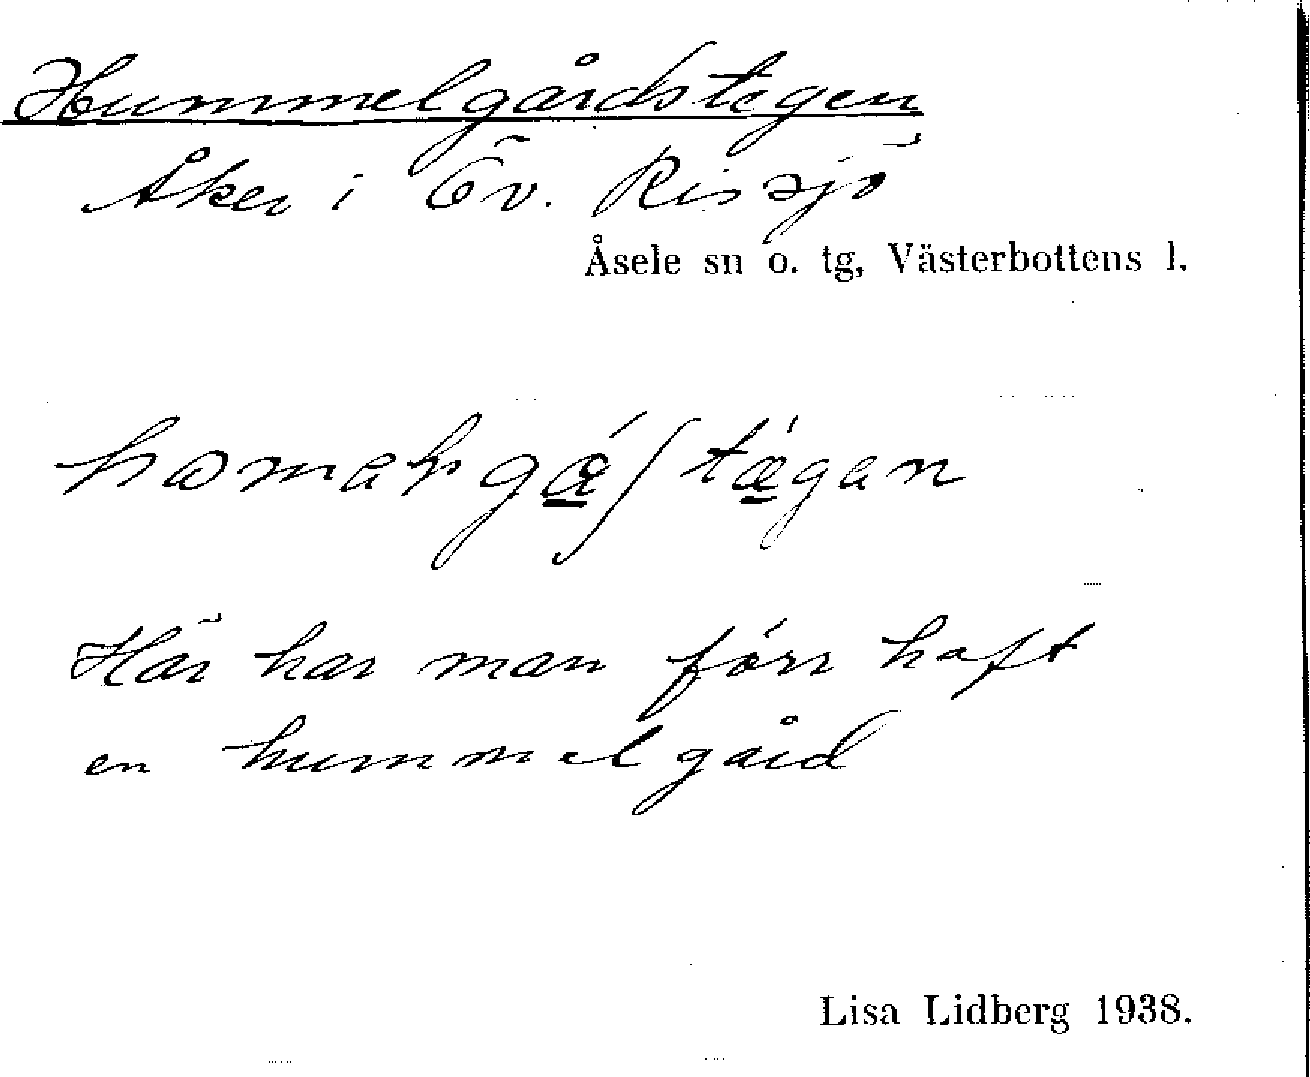 Hummelgårdstegen
Åker i Öv. Rissjö
Åsele sn o. tg, Västerbottens l.
Här har man förr haft
en hummelgård
Lisa Lidberg 1938.